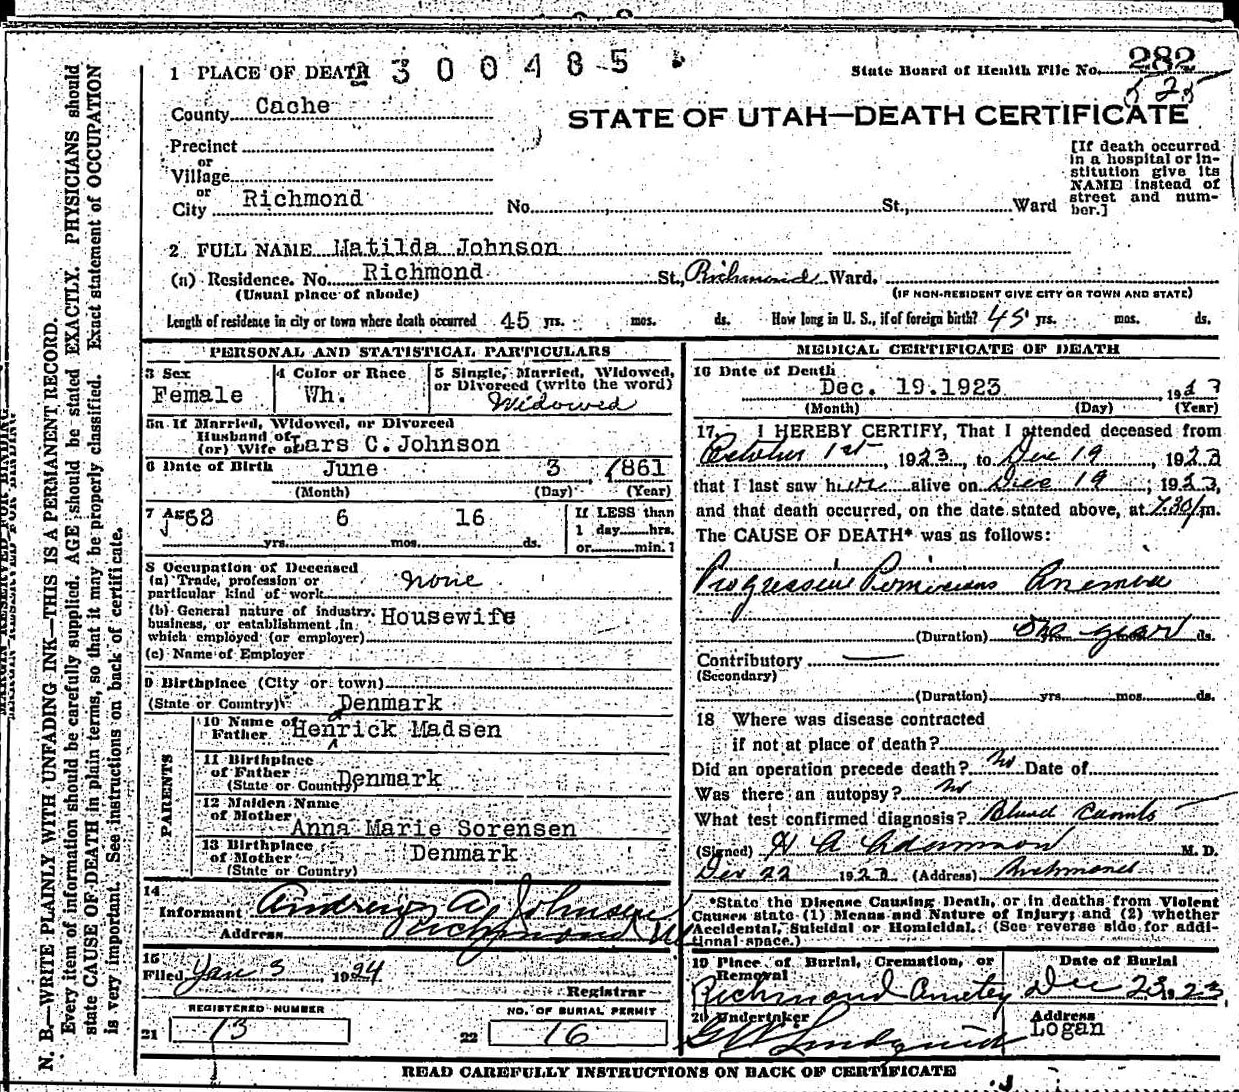 1 PLACE OF DEATH 300485
State Board of Health File No. 282
525
County Cache
STATE OF UTAH—DEATH CERTIFICATE
Precinct
or
Village
or
City Richmond No. St., Ward
[If death occurred
in a hospital or in-
stitution give its
NAME instead of
street and num-
ber.]
2 FULL NAME Matilda Johnson
(a) Residence. No. Richmond St., Richmond Ward.
(Usual place of abode) (IF NON-RESIDENT GIVE CITY OR TOWN AND STATE)
Length of residence in city or town where death occurred 45 yrs. mos. ds. How long in U. S., if of foreign birth? 45 yrs. mos. ds.
PERSONAL AND STATISTICAL PARTICULARS
3 Sex
Female
4 Color or Race
Wh.
5 Single, Married, Widowed,
or Divorced (write the word)
Widowed
5a If Married, Widowed, or Divorced
Husband of
(or) Wife of Lars C. Johnson
6 Date of Birth June 3 1861
(Month) (Day) (Year)
7 Age 62 6 16
yrs. mos. ds.
If LESS than
1 day hrs.
or min.?
8 Occupation of Deceased
(a) Trade, profession or
particular kind of work none
(b) General nature of industry,
business, or establishment in
which employed (or employer) Housewife
(c) Name of Employer
9 Birthplace (City or town)
(State or Country) Denmark
PARENTS
10 Name of
Father Henrick Madsen
11 Birthplace
of Father
(State or Country) Denmark
12 Maiden Name
of Mother
Anna Marie Sorensen
13 Birthplace
of Mother Denmark
(State or Country)
14
Informant Andrew A. Johnson
Address Richmond
15
Filed Jan 3 1924
Registrar
REGISTERED NUMBER
21 13
NO. OF BURIAL PERMIT
22 16
MEDICAL CERTIFICATE OF DEATH
16 Date of Death
Dec. 19.1923 1923
(Month) (Day) (Year)
17 I HEREBY CERTIFY, That I attended deceased from
October 1st, 1923, to Dec 19, 1923
that I last saw her alive on Dec 19, 1923,
and that death occurred, on the date stated above, at 7.30/m.
The CAUSE OF DEATH* was as follows:
Progressive Pernicious Anemia
(Duration) One year ds.
Contributory
(Secondary)
(Duration) yrs. mos. ds.
18 Where was disease contracted
if not at place of death?
Did an operation precede death? No Date of
Was there an autopsy? No
What test confirmed diagnosis? Blood Counts
(Signed) H A Adamson M. D.
Dec 22 1923 (Address) Richmond
*State the Disease Causing Death, or in deaths from Violent
Causes state (1) Means and Nature of Injury; and (2) whether
Accidental, Suicidal or Homicidal. (See reverse side for addi-
tional space.)
19 Place of Burial, Cremation, or
Removal
Date of Burial
Richmond Cemetery Dec 23, 1923
20 Undertaker
Address
G W Lindquist Logan
READ CAREFULLY INSTRUCTIONS ON BACK OF CERTIFICATE
MARGIN RESERVED FOR BINDING
N. B.—WRITE PLAINLY WITH UNFADING INK—THIS IS A PERMANENT RECORD.
Every item of information should be carefully supplied. AGE should be stated EXACTLY. PHYSICIANS should
state CAUSE OF DEATH in plain terms, so that it may be properly classified. Exact statement of OCCUPATION
is very important. See instructions on back of certificate.